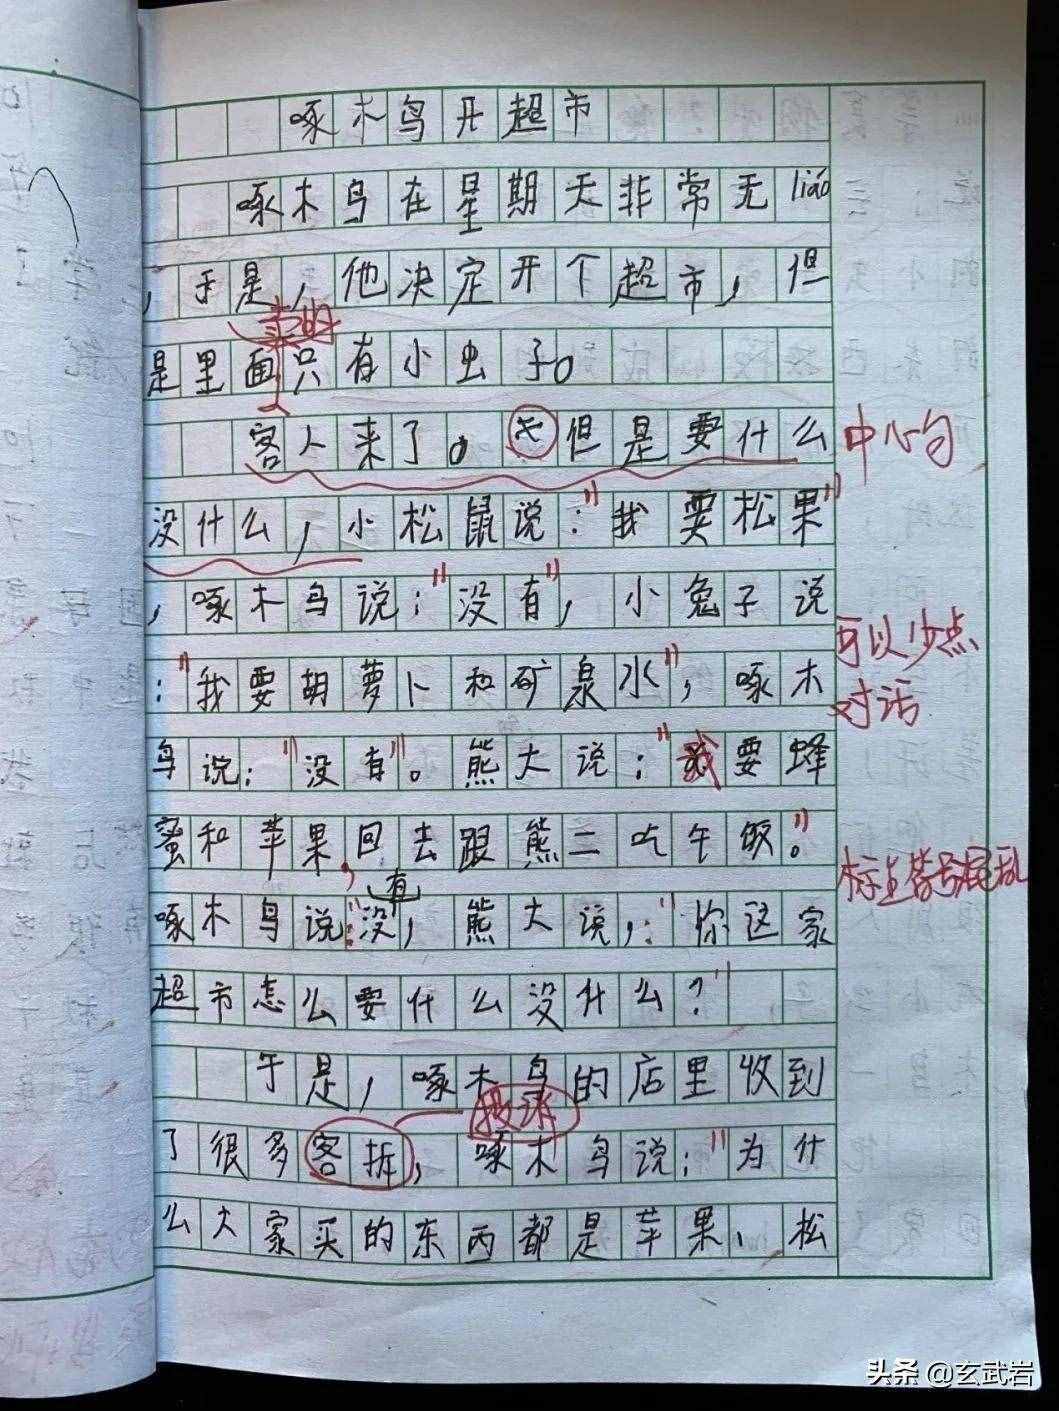 啄木鸟开超市
啄木鸟在星期天非常无liáo
，于是，他决定开个超市，但
卖的
是里面只有小虫子。
客人来了。但是要什么
中心句
没什么，小松鼠说："我要松果"
，啄木鸟说："没有"，小兔子说
可以少点
："我要胡萝卜和矿泉水"，啄木
对话
鸟说："没有"。熊大说："我要蜂
蜜和苹果，回去跟熊二吃午饭。"
标点符号混乱
有
啄木鸟说："没，熊大说，："你这家
超市怎么要什么没什么？"
于是，啄木鸟的店里收到
投诉
了很多客拆，啄木鸟说："为什
么大家买的东西都是苹果、松
头条 @玄武岩